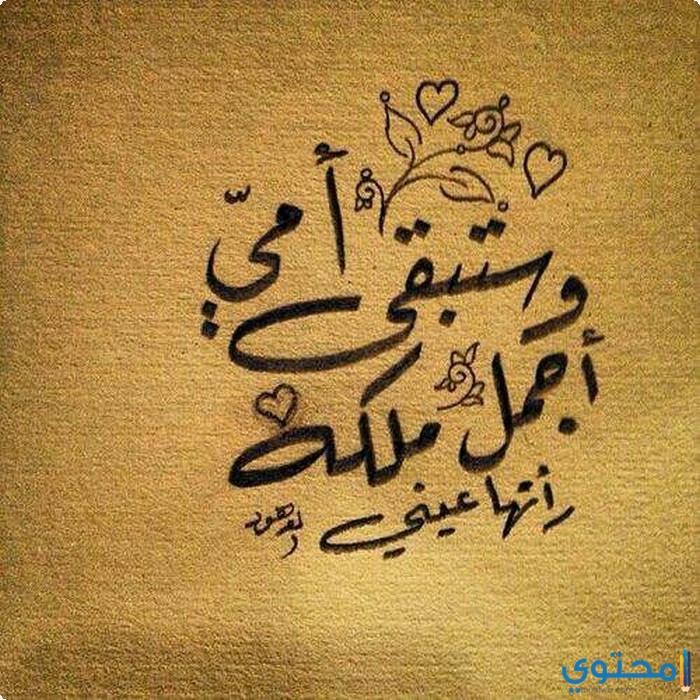 وستبقى أميّ
أجمل ملكة
رأتها عيني
محتوى